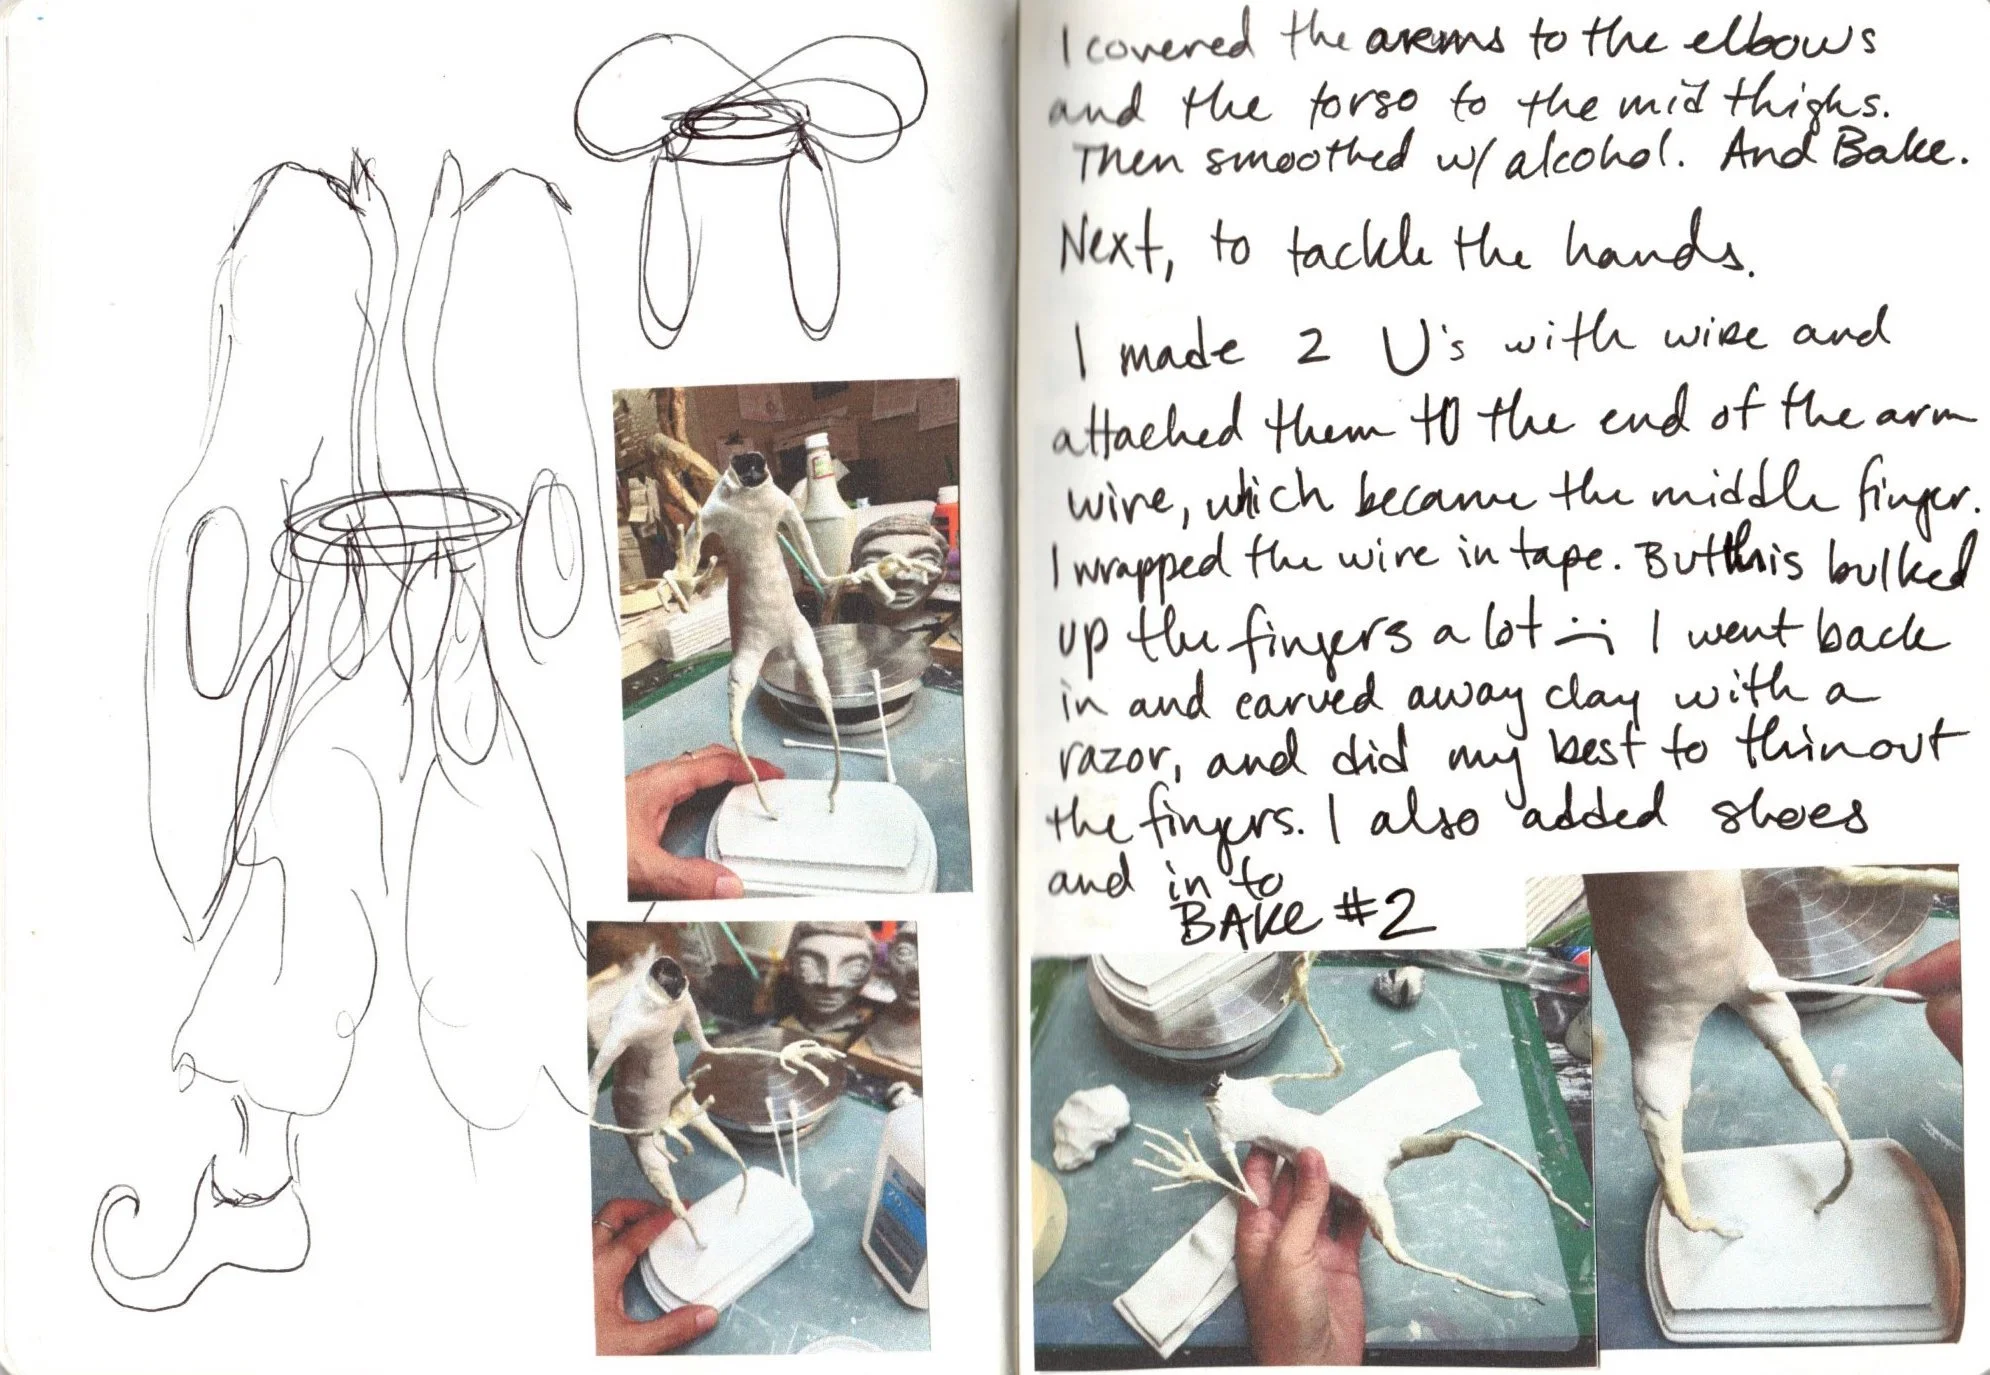 I covered the arms to the elbows
and the torso to the mid thighs.
Then smoothed w/ alcohol. And Bake.
Next, to tackle the hands.
I made 2 U's with wire and
attached them to the end of the arm
wire, which became the middle finger.
I wrapped the wire in tape. But this bulked
up the fingers a lot :( I went back
in and carved away clay with a
razor, and did my best to thin out
the fingers. I also added shoes
and in to
BAKE #2